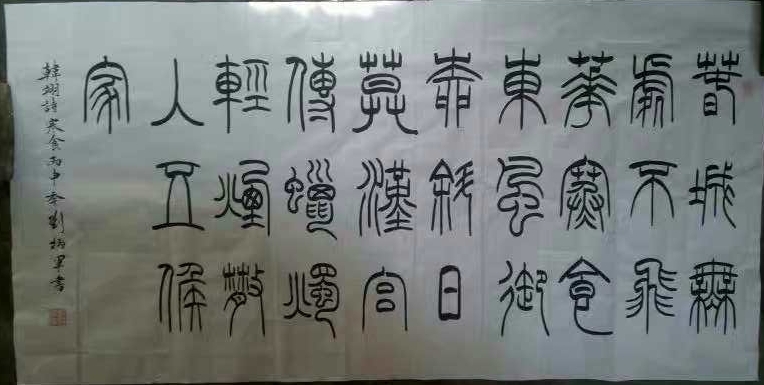 春城無
處不飛
華寒食
東風御
柳斜日
莫漢宮
傳蠟燭
輕煙散
入五侯
家
韓翃詩寒食丙申劉炳軍書